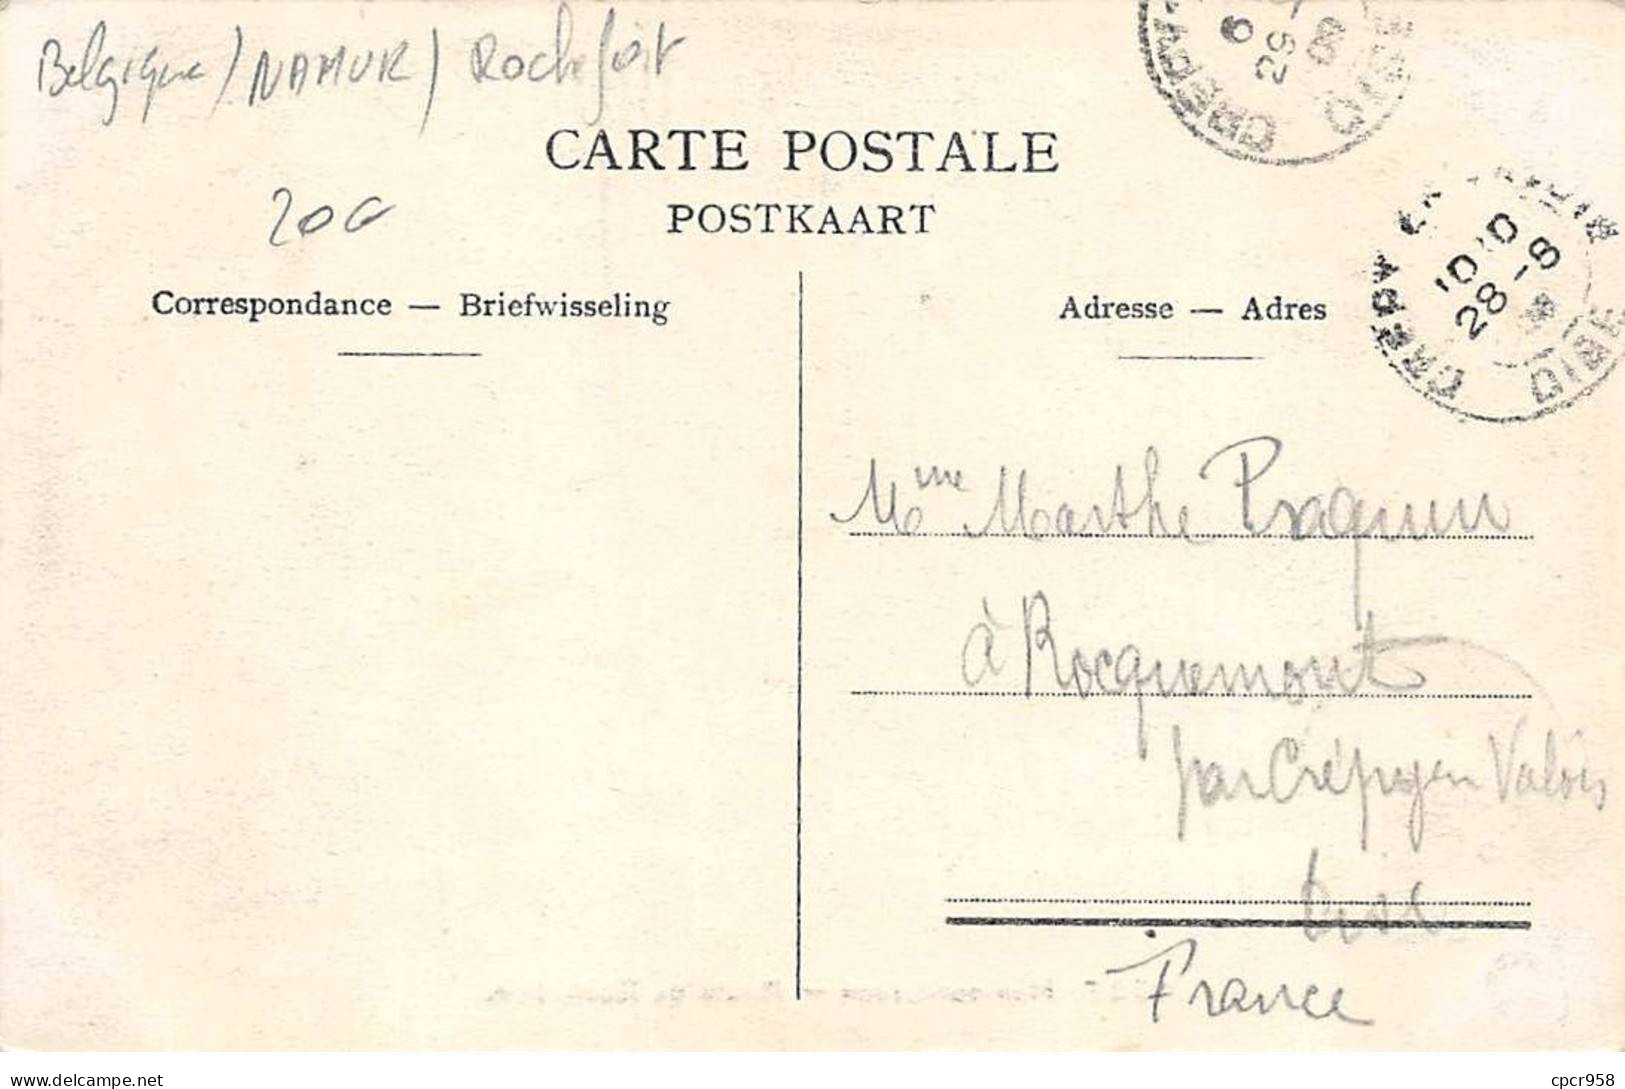 Belgique / NAMUR / Rochefort
CARTE POSTALE
POSTKAART
Correspondance — Briefwisseling
Adresse — Adres
6
29-8
CREPY
OISE
10 10
28-8
CREPY EN VALOIS
OISE
Mme Marthe
à Rocquemont
par Crépy en Valois
Oise
France
delcampe.net
cpcr958